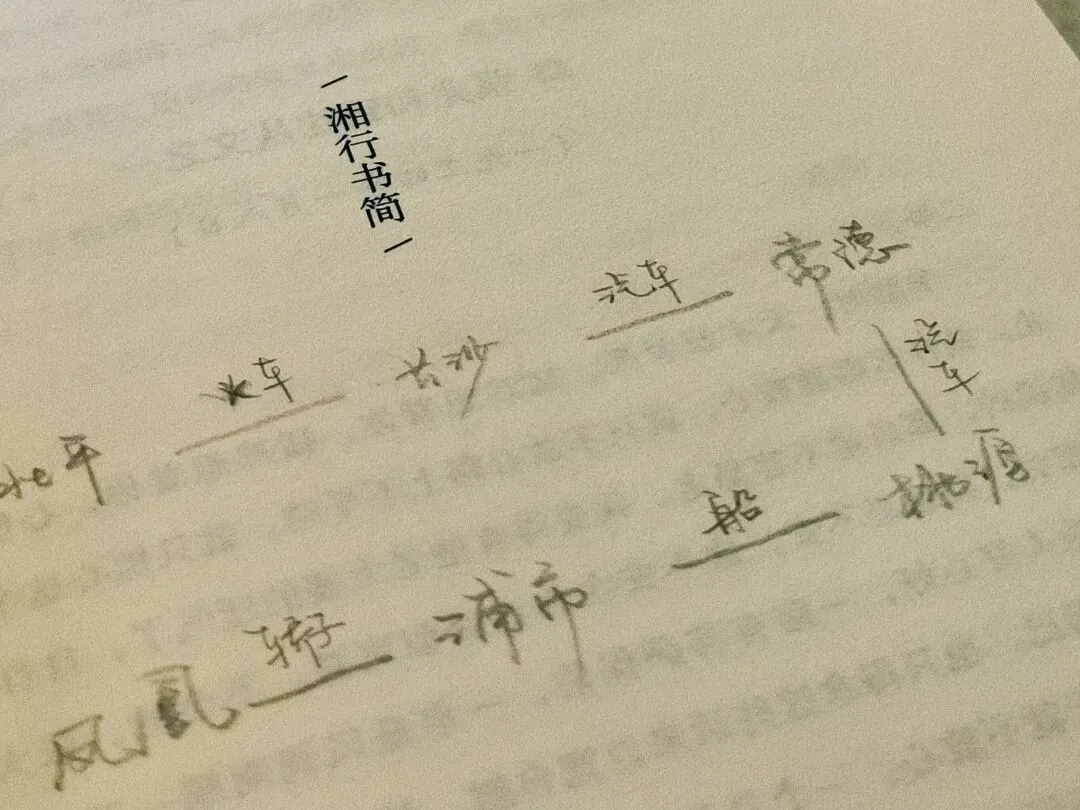 湘行书简
北平 火车 长沙 汽车 常德
汽车
桃源 船 浦市 轿子 凤凰